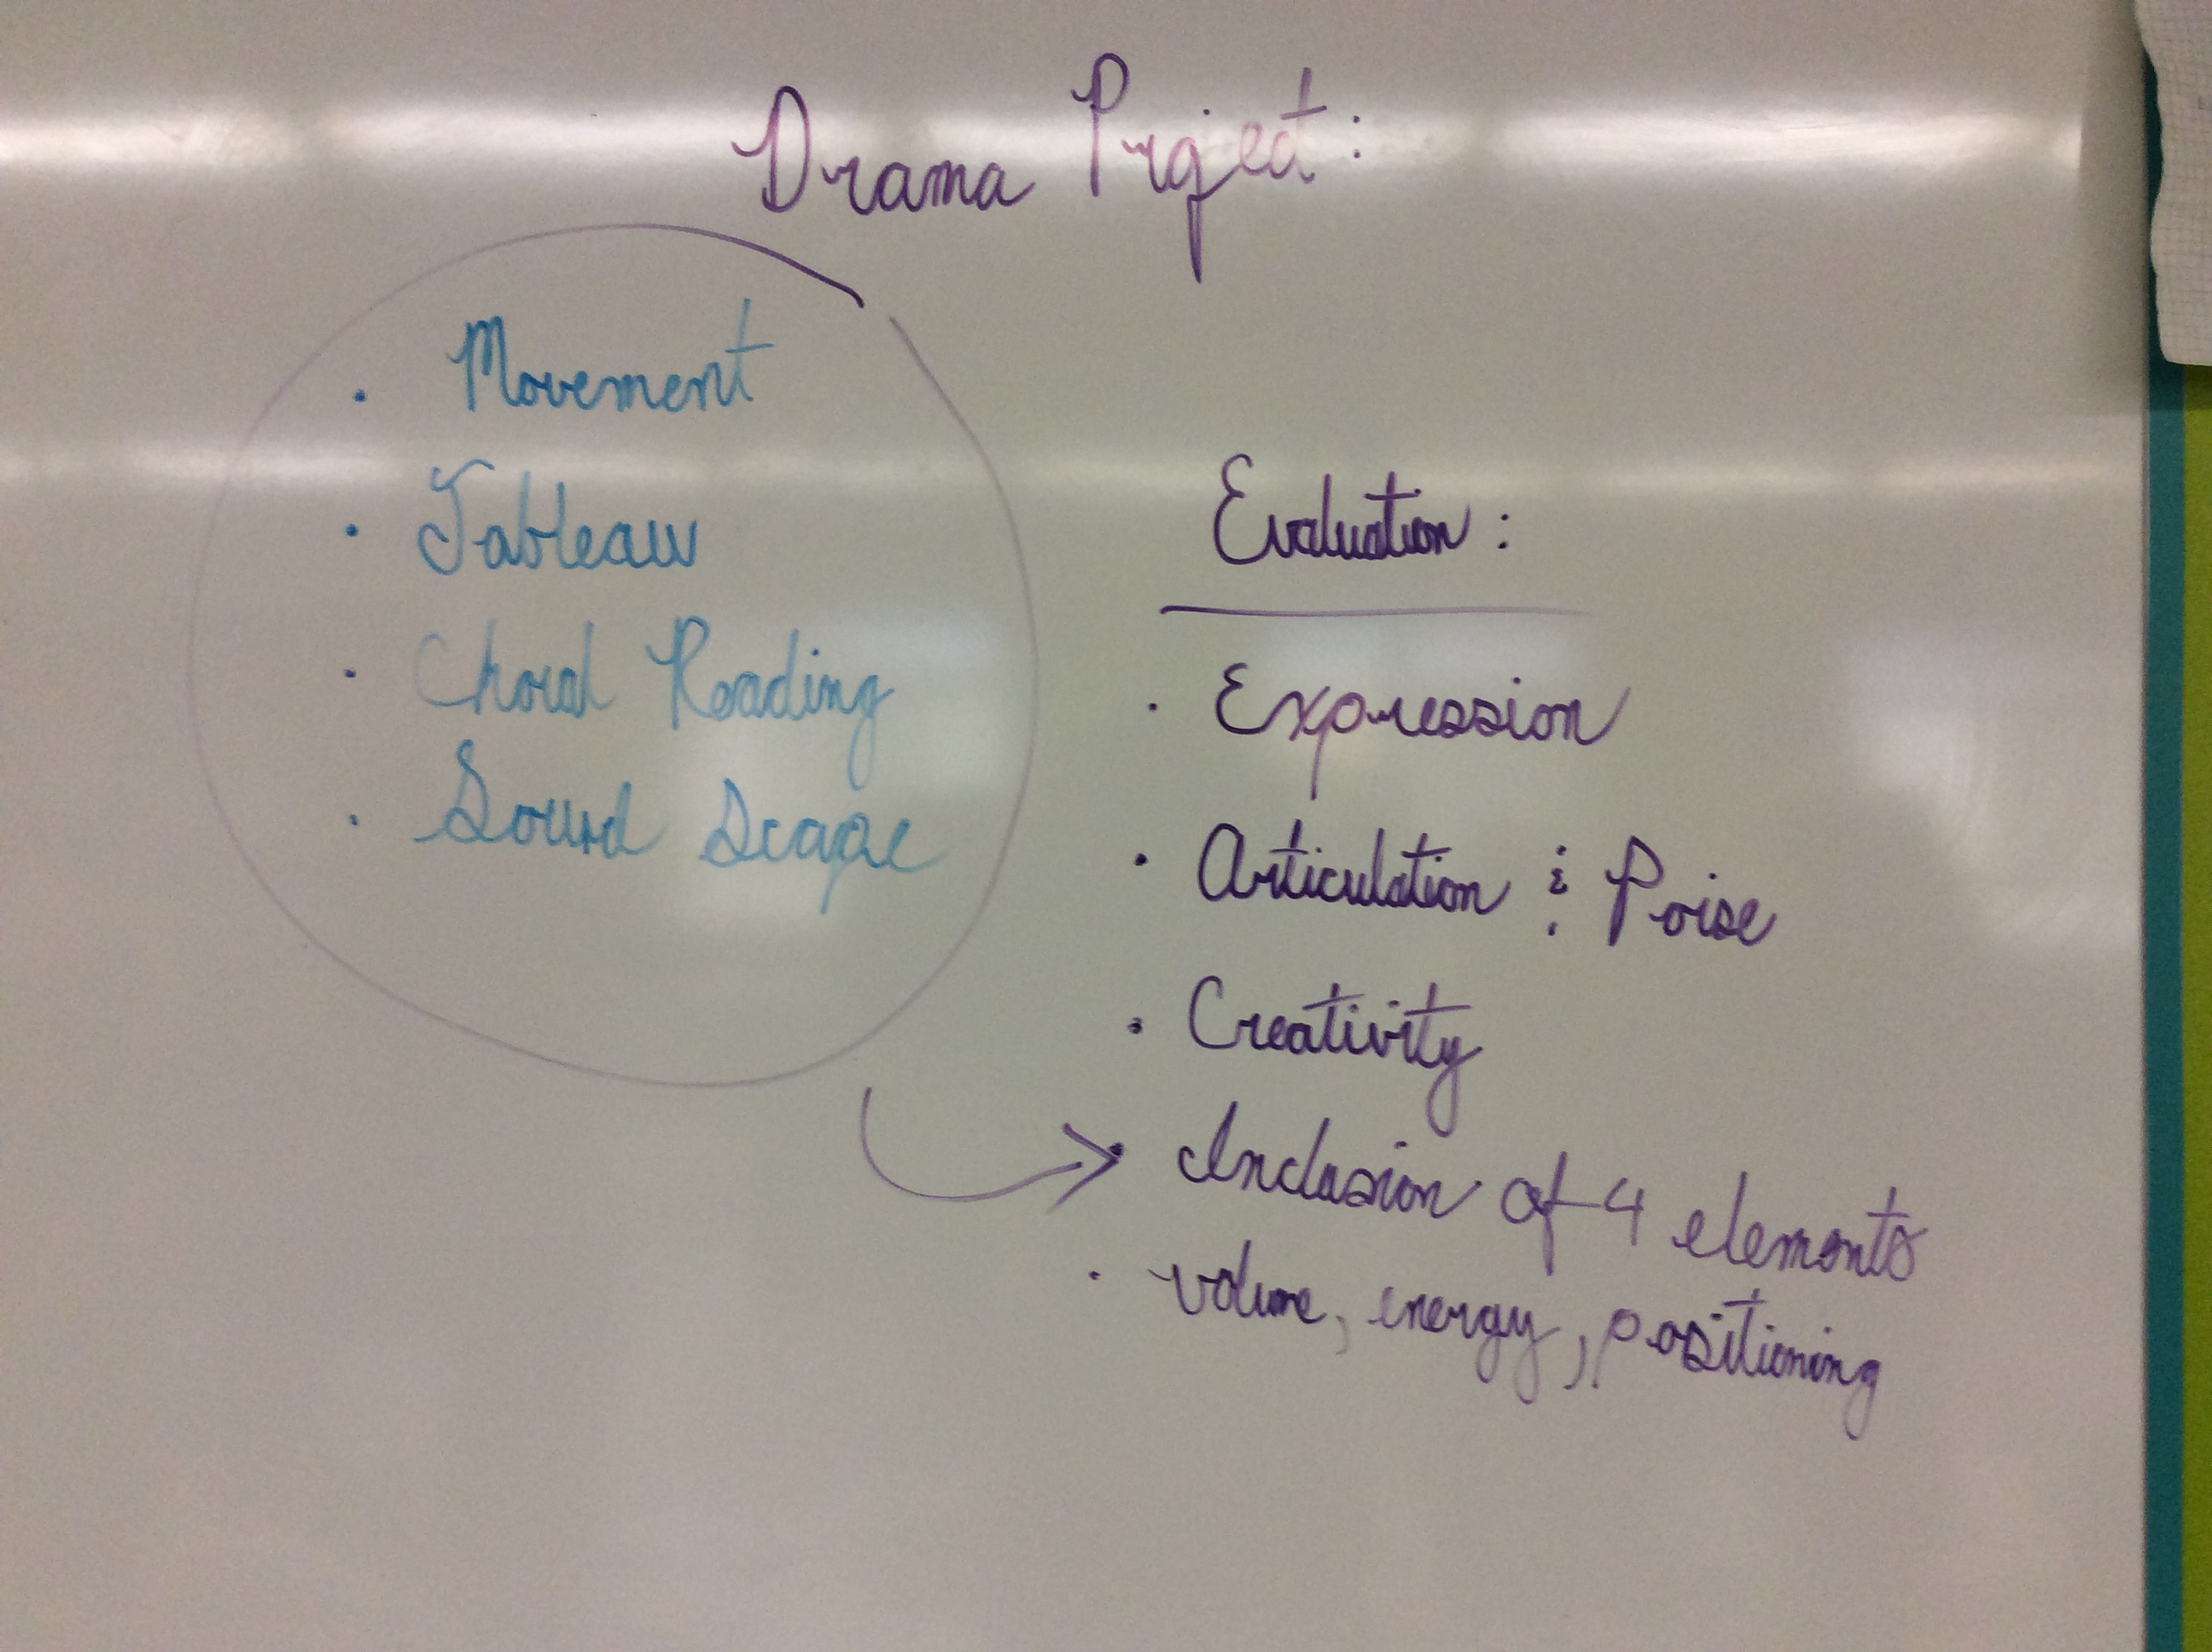 Drama Project:
• Movement
• Tableau
• Choral Reading
• Sound Scape
Evaluation:
• Expression
• Articulation & Poise
• Creativity
• Inclusion of 4 elements
• volume, energy, positioning